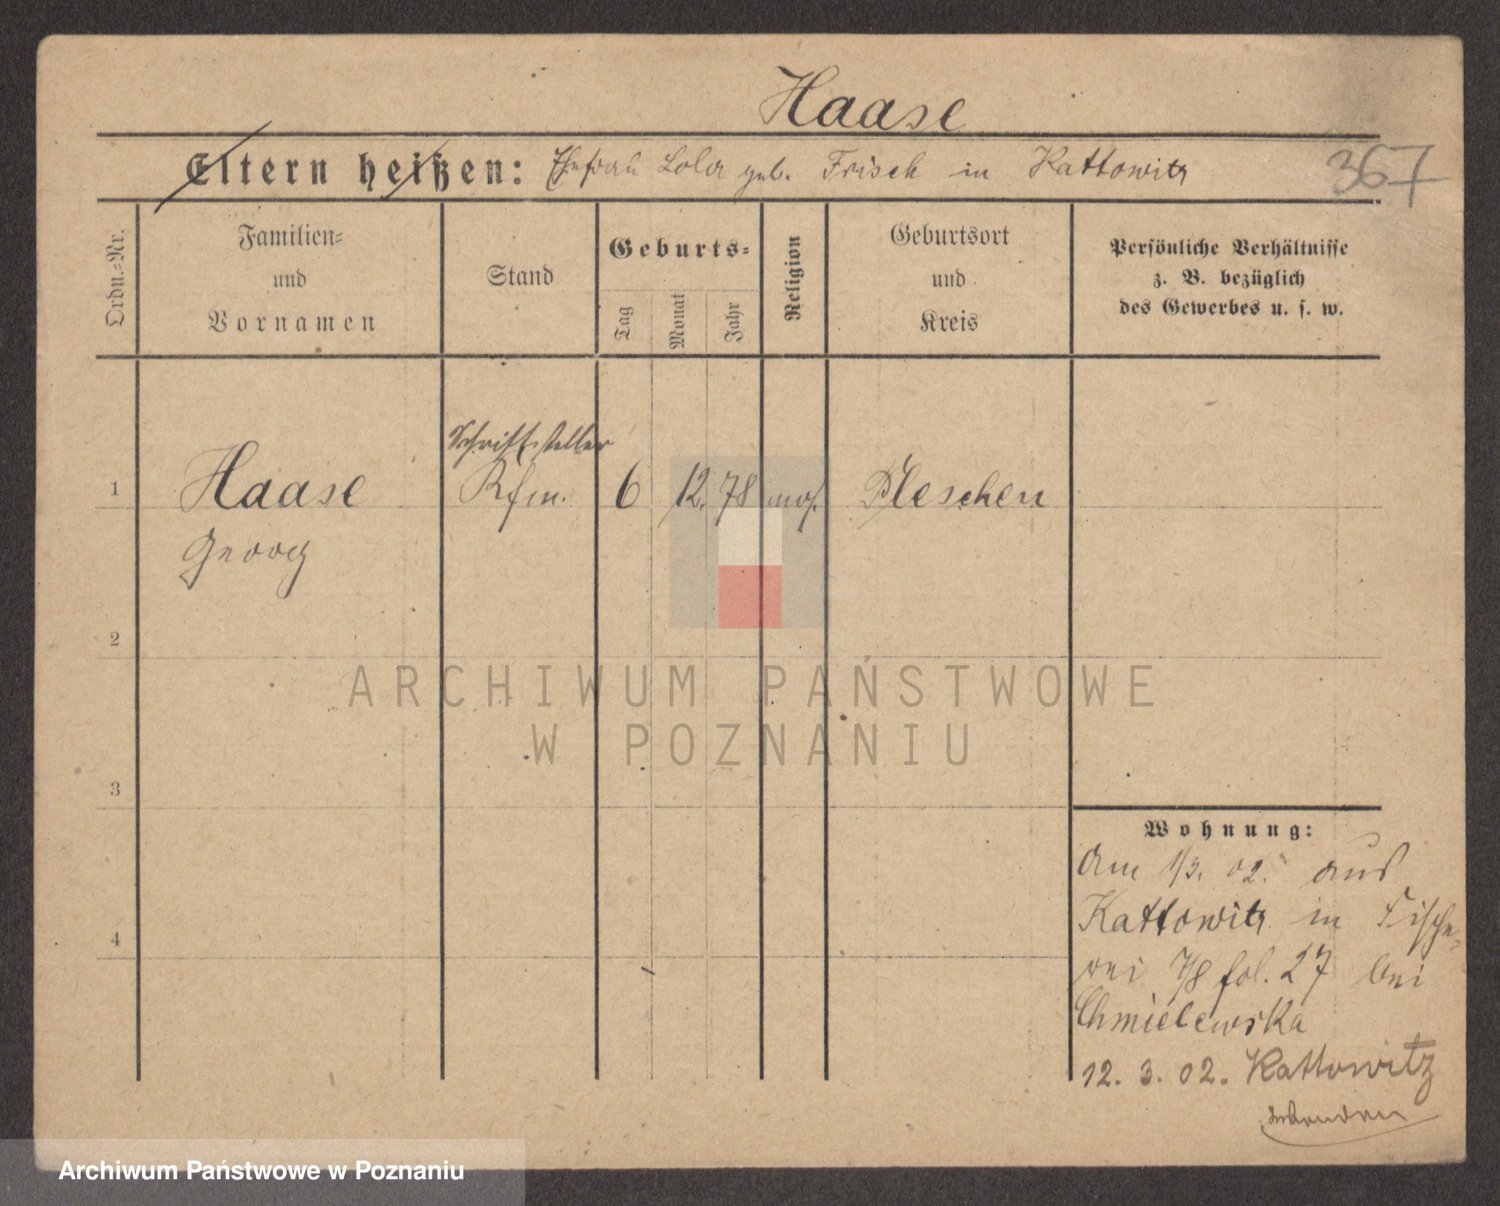 Haase
Eltern heißen: Ehefrau Lola geb. Frisch in Kattowitz
367
Ordn.-Nr.
Familien-
und
Vornamen
Stand
Geburts-
Tag
Monat
Jahr
Religion
Geburtsort
und
Kreis
Persönliche Verhältnisse
z. B. bezüglich
des Gewerbes u. s. w.
Schriftsteller
1 Haase Kfm. 6 12. 78 mos. Pleschen
Georg
2
ARCHIWUM PAŃSTWOWE
W POZNANIU
3
Wohnung:
Am 1/3. 02. aus
Kattowitz in Fische-
rei 7/8 fol. 27 bei
Chmielewska
12. 3. 02. Kattowitz
4
Archiwum Państwowe w Poznaniu